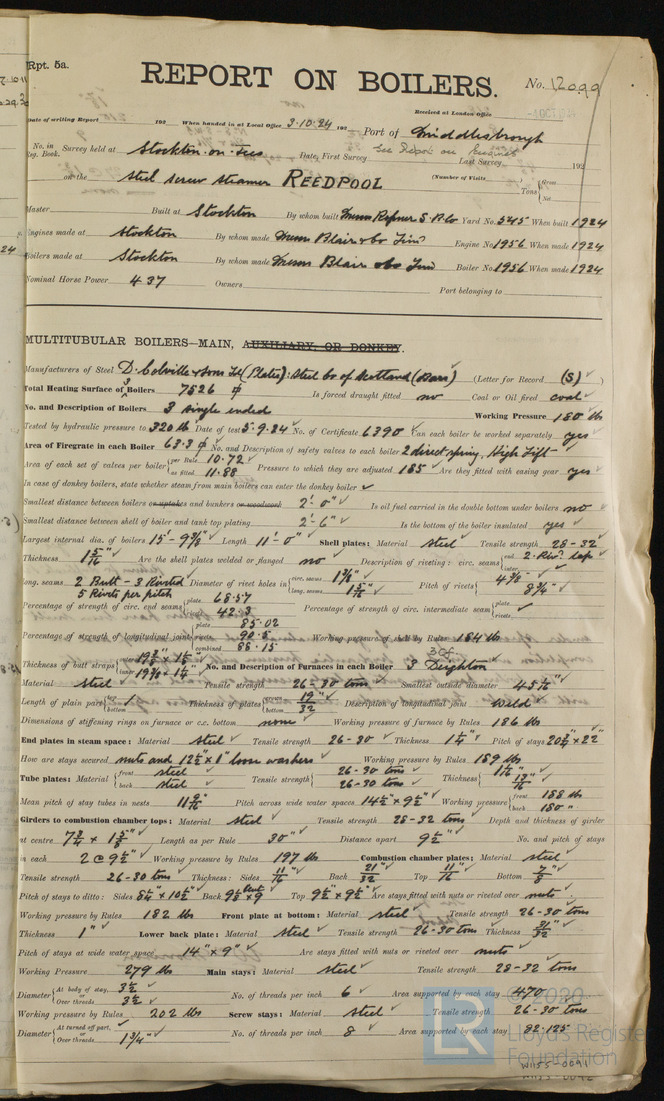 Rpt. 5a.
REPORT ON BOILERS.
No. 12099
Received at London Office
Date of writing Report 192 When handed in at Local Office 3.10.24 192 Port of Middlesbrough
No. in Reg. Book. Survey held at Stockton-on-Tees Date, First Survey See Report on Engines Last Survey 192
on the Steel screw steamer REEDPOOL (Number of Visits) Tons { Gross Net
Master Built at Stockton By whom built Yard No. 545 When built 1924
Engines made at Stockton By whom made Messrs Blair & Co Limd Engine No. 1956 When made 1924
Boilers made at Stockton By whom made Messrs Blair & Co Limd Boiler No. 1956 When made 1924
Nominal Horse Power 437 Owners Port belonging to
MULTITUBULAR BOILERS—MAIN, AUXILIARY, OR DONKEY.
Manufacturers of Steel D. Colville & Sons Ld (Plates): Steel Co of Scotland (Bars) (Letter for Record (S) )
Total Heating Surface of 3 Boilers 7526 Is forced draught fitted no Coal or Oil fired coal
No. and Description of Boilers 3 single ended Working Pressure 180 lb
Tested by hydraulic pressure to 320 lb Date of test 5.9.24 No. of Certificate 6390 Can each boiler be worked separately yes
Area of Firegrate in each Boiler 63.3 No. and Description of safety valves to each boiler 2 direct spring, High Lift
Area of each set of valves per boiler { per Rule 10.72 as fitted 11.88 Pressure to which they are adjusted 185 Are they fitted with easing gear yes
In case of donkey boilers, state whether steam from main boilers can enter the donkey boiler
Smallest distance between boilers or uptakes and bunkers or woodwork 2'-0" Is oil fuel carried in the double bottom under boilers no
Smallest distance between shell of boiler and tank top plating 2'-6" Is the bottom of the boiler insulated yes
Largest internal dia. of boilers 15'-9 3/8" Length 11'-0" Shell plates: Material steel Tensile strength 28-32
Thickness 1 5/16" Are the shell plates welded or flanged no Description of riveting: circ. seams { end 2 Riv. lap inter.
long. seams 2 Butt - 3 Riveted 5 Rivets per pitch Diameter of rivet holes in { circ. seams 1 3/8" long. seams 1 5/16" Pitch of rivets { 4 3/8" 8 3/4"
Percentage of strength of circ. end seams { plate 68.57 rivets 42.3 Percentage of strength of circ. intermediate seam { plate rivets
Percentage of strength of longitudinal joint { plate 85.02 rivets 90.5 combined 88.15 Working pressure of shell by Rules 184 lb
Thickness of butt straps { outer inner No. and Description of Furnaces in each Boiler 3 Deighton
Material steel Tensile strength 26-30 tons Smallest outside diameter
Length of plain part { top bottom Thickness of plates { crown bottom 19/32" Description of longitudinal joint weld
Dimensions of stiffening rings on furnace or c.c. bottom none Working pressure of furnace by Rules 186 lb
End plates in steam space: Material steel Tensile strength 26-30 Thickness 1 1/4" Pitch of stays 20 3/4" x 22"
How are stays secured nuts and 12 1/2" x 1" loose washers Working pressure by Rules 189 lb
Tube plates: Material { front steel back steel Tensile strength { 26-30 tons 26-30 tons Thickness { 1 1/16" 13/16"
Mean pitch of stay tubes in nests 11 9/16" Pitch across wide water spaces 14 1/2" x 9 1/2" Working pressure { front 188 lb back 180 "
Girders to combustion chamber tops: Material steel Tensile strength 28-32 tons Depth and thickness of girder
at centre 7 3/4 x 1 5/8 Length as per Rule 30" Distance apart 9 1/2" No. and pitch of stays
in each 2 @ 9 1/2" Working pressure by Rules 197 lb Combustion chamber plates: Material steel
Tensile strength 26-30 tons Thickness: Sides 11/16" Back 21/32" Top 11/16" Bottom 7/8"
Pitch of stays to ditto: Sides Back Top 9 1/2" x 9 1/2" Are stays fitted with nuts or riveted over nuts
Working pressure by Rules 182 lb Front plate at bottom: Material steel Tensile strength 26-30 tons
Thickness 1" Lower back plate: Material steel Tensile strength 26-30 tons Thickness 31/32"
Pitch of stays at wide water space 14" x 9" Are stays fitted with nuts or riveted over nuts
Working Pressure 279 lb Main stays: Material steel Tensile strength 28-32 tons
Diameter { At body of stay, or Over threads 3 1/2 3 1/2 No. of threads per inch 6 Area supported by each stay 470
Working pressure by Rules 202 lb Screw stays: Material steel Tensile strength 26-30 tons
Diameter { At turned off part, or Over threads 1 3/4" No. of threads per inch 8 Area supported by each stay 82.125
© 2020
LR
Lloyd's Register
Foundation
W1155-0091
W1155-0092